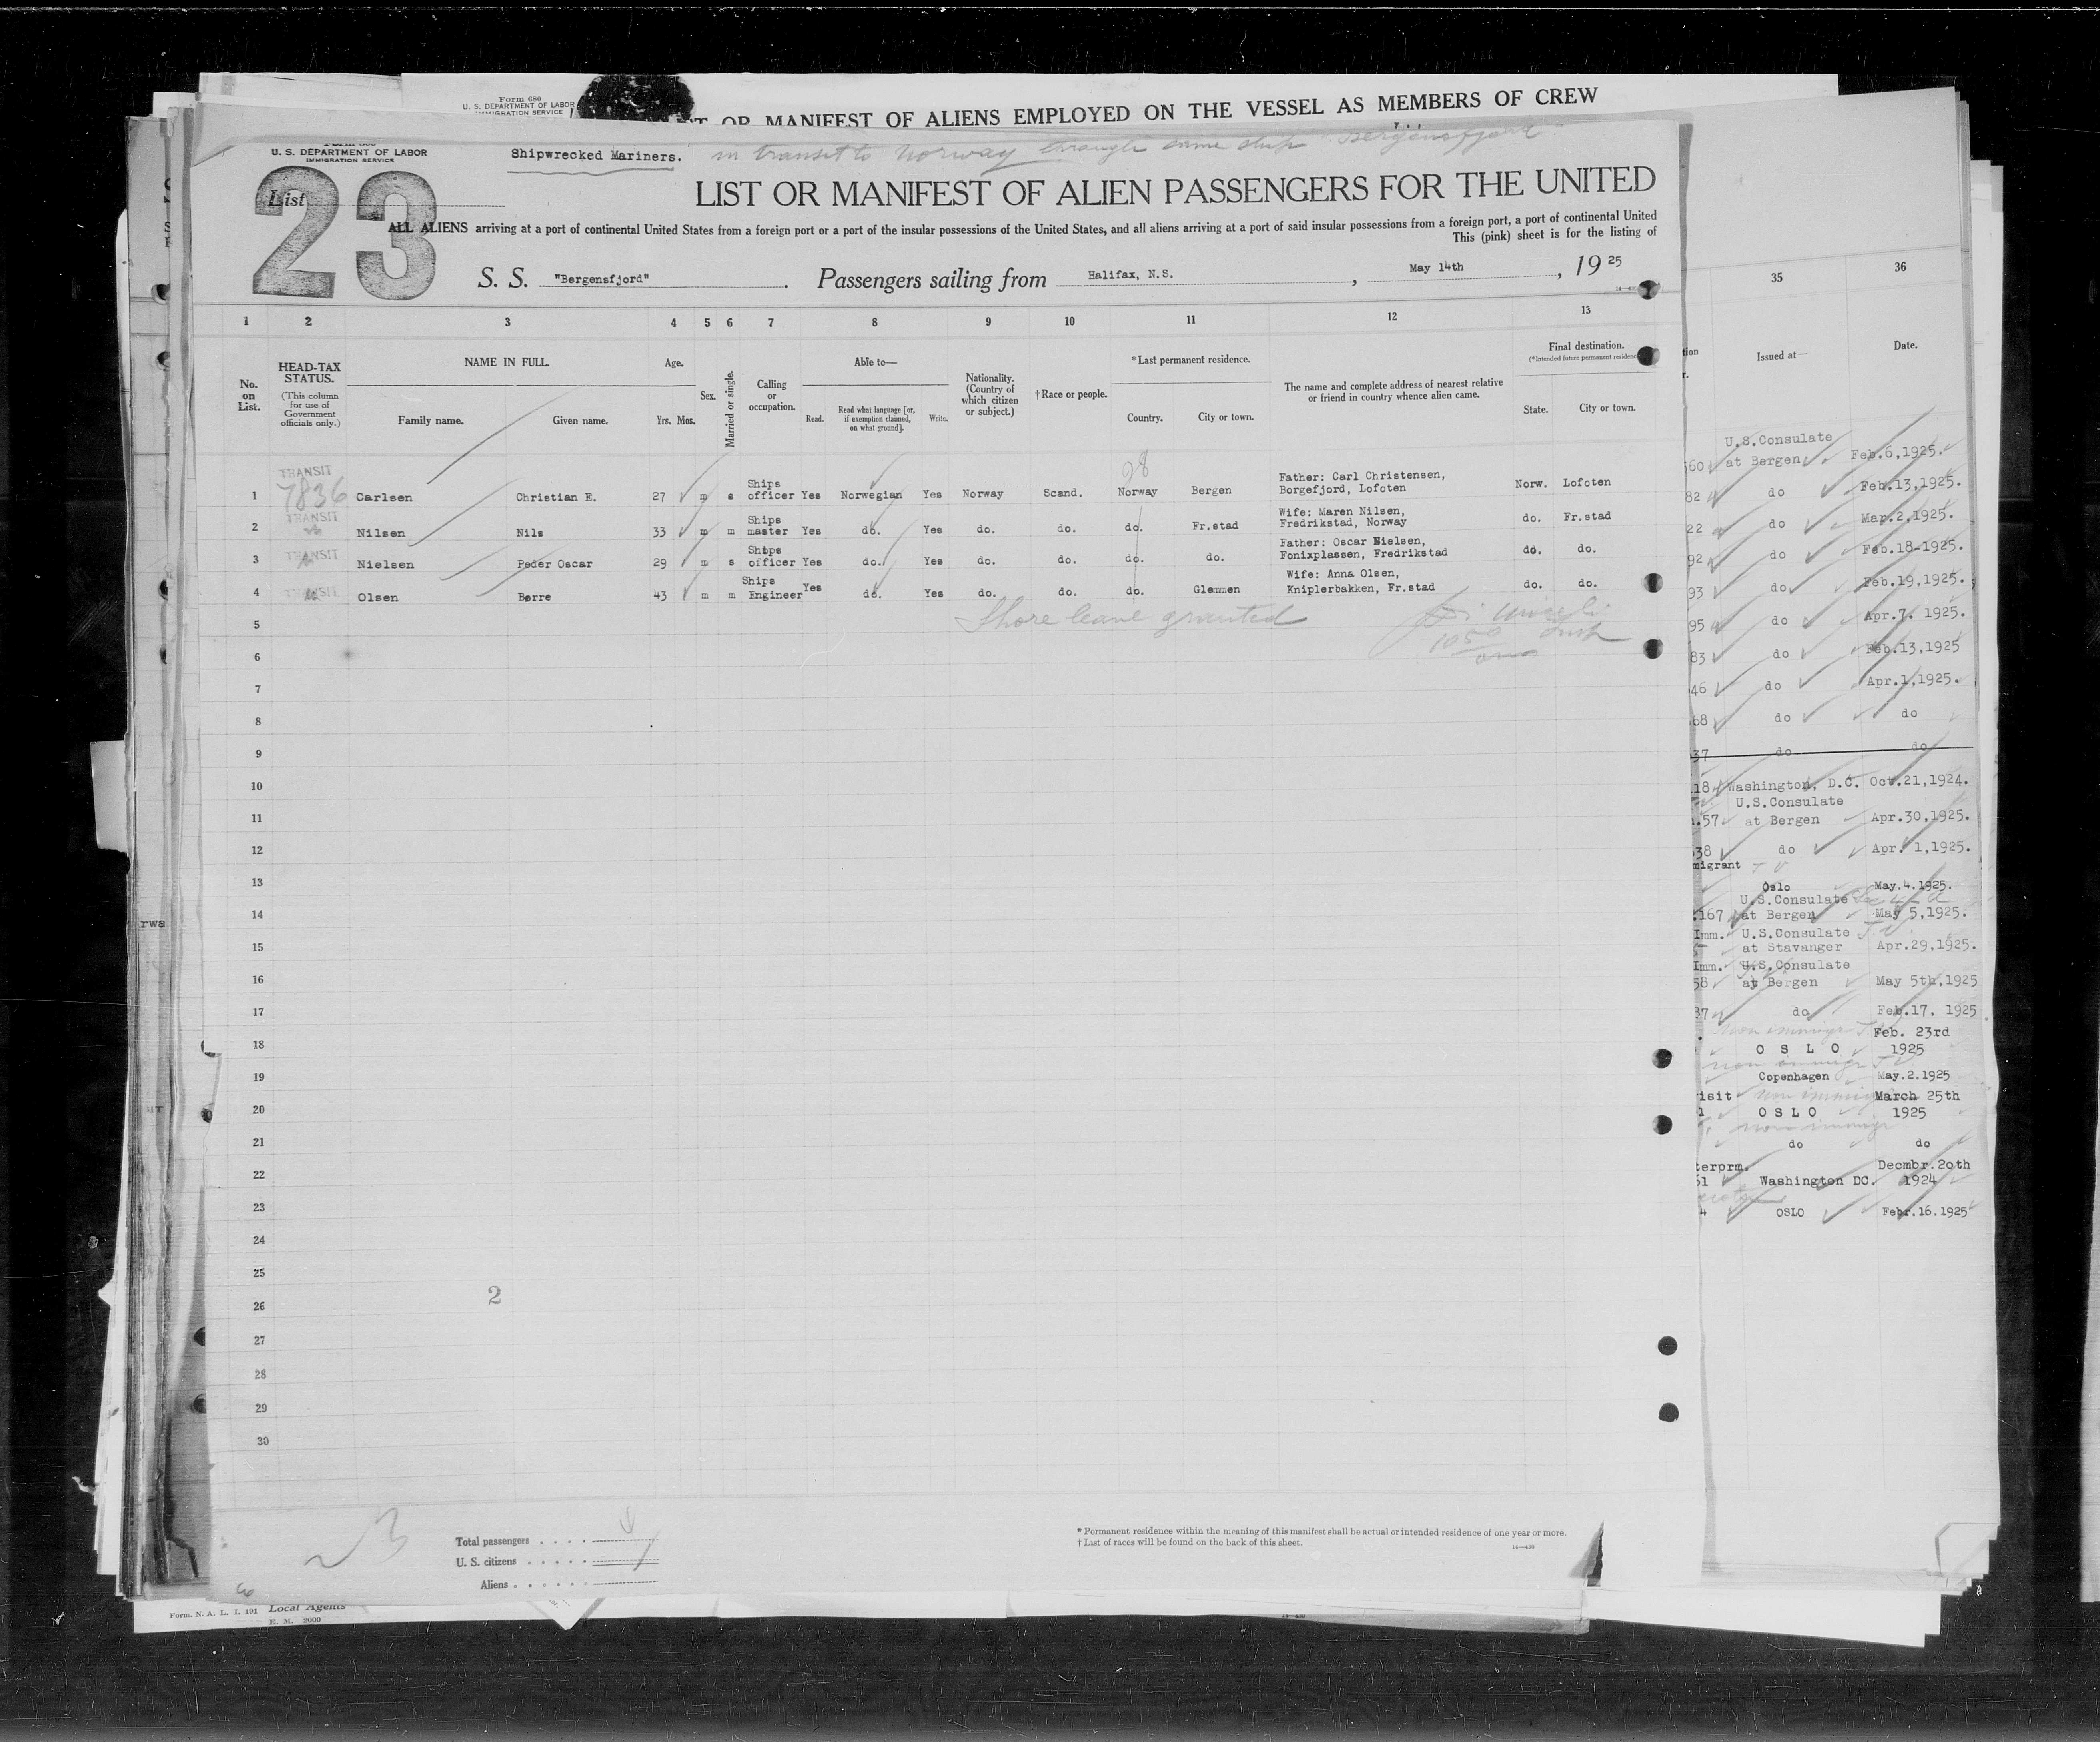 Form 680
U. S. DEPARTMENT OF LABOR
IMMIGRATION SERVICE
OR MANIFEST OF ALIENS EMPLOYED ON THE VESSEL AS MEMBERS OF CREW
U. S. DEPARTMENT OF LABOR
IMMIGRATION SERVICE
Shipwrecked Mariners. in transit to Norway through same ship Bergensfjord
List 23
LIST OR MANIFEST OF ALIEN PASSENGERS FOR THE UNITED
ALL ALIENS arriving at a port of continental United States from a foreign port or a port of the insular possessions of the United States, and all aliens arriving at a port of said insular possessions from a foreign port, a port of continental United
This (pink) sheet is for the listing of
S. S. "Bergensfjord" . Passengers sailing from Halifax, N.S. , May 14th , 19 25
1 2 3 4 5 6 7 8 9 10 11 12 13
No. on List.
HEAD-TAX STATUS.
(This column for use of Government officials only.)
NAME IN FULL.
Family name. Given name.
Age.
Yrs. Mos.
Sex.
Married or single.
Calling or occupation.
Able to—
Read. Read what language [or, if exemption claimed, on what ground]. Write.
Nationality. (Country of which citizen or subject.)
† Race or people.
* Last permanent residence.
Country. City or town.
The name and complete address of nearest relative or friend in country whence alien came.
Final destination.
(* Intended future permanent residence
State. City or town.
98
1 TRANSIT 7836 Carlsen Christian E. 27 m s Ships officer Yes Norwegian Yes Norway Scand. Norway Bergen Father: Carl Christensen, Borgefjord, Lofoten Norw. Lofoten
2 TRANSIT Nilsen Nils 33 m m Ships master Yes do. Yes do. do. do. Fr.stad Wife: Maren Nilsen, Fredrikstad, Norway do. Fr.stad
3 TRANSIT Nielsen Peder Oscar 29 m s Ships officer Yes do. Yes do. do. do. do. Father: Oscar Nielsen, Fonixplassen, Fredrikstad do. do.
4 TRANSIT Olsen Børre 43 m m Ships Engineer Yes do. Yes do. do. do. Glemmen Wife: Anna Olsen, Kniplerbakken, Fr.stad do. do.
5 Shore leave granted
6
7
8
9
10
11
12
13
14
15
16
17
18
19
20
21
22
23
24
25
26
27
28
29
30
2
Total passengers
U. S. citizens
Aliens
* Permanent residence within the meaning of this manifest shall be actual or intended residence of one year or more.
† List of races will be found on the back of this sheet.
14—430
Form. N. A. L. I. 191 Local Agents
E. M. 2000
35 36
Issued at— Date.
U.S.Consulate
60 at Bergen Feb.6,1925.
82 do Feb.13,1925.
22 do Mar.2,1925.
92 do Feb.18-1925.
93 do Feb.19,1925.
95 do Apr.7. 1925.
83 do Feb.13,1925
46 do Apr.1,1925.
68 do do
37 do do
18 Washington, D.C. Oct.21,1924.
U.S.Consulate
.57 at Bergen Apr.30,1925.
38 do Apr. 1,1925.
migrant
Oslo May.4.1925.
U.S.Consulate
167 at Bergen May 5,1925.
Imm. U.S.Consulate
at Stavanger Apr.29,1925.
Imm. U.S.Consulate
58 at Bergen May 5th,1925
37 do Feb.17, 1925
non immigr Feb. 23rd
O S L O 1925
non immigr
Copenhagen May.2.1925
isit non immigr March 25th
1 O S L O 1925
non immigr
do do
terprm. Decmbr.20th
51 Washington DC. 1924
4 OSLO Febr.16.1925
rws